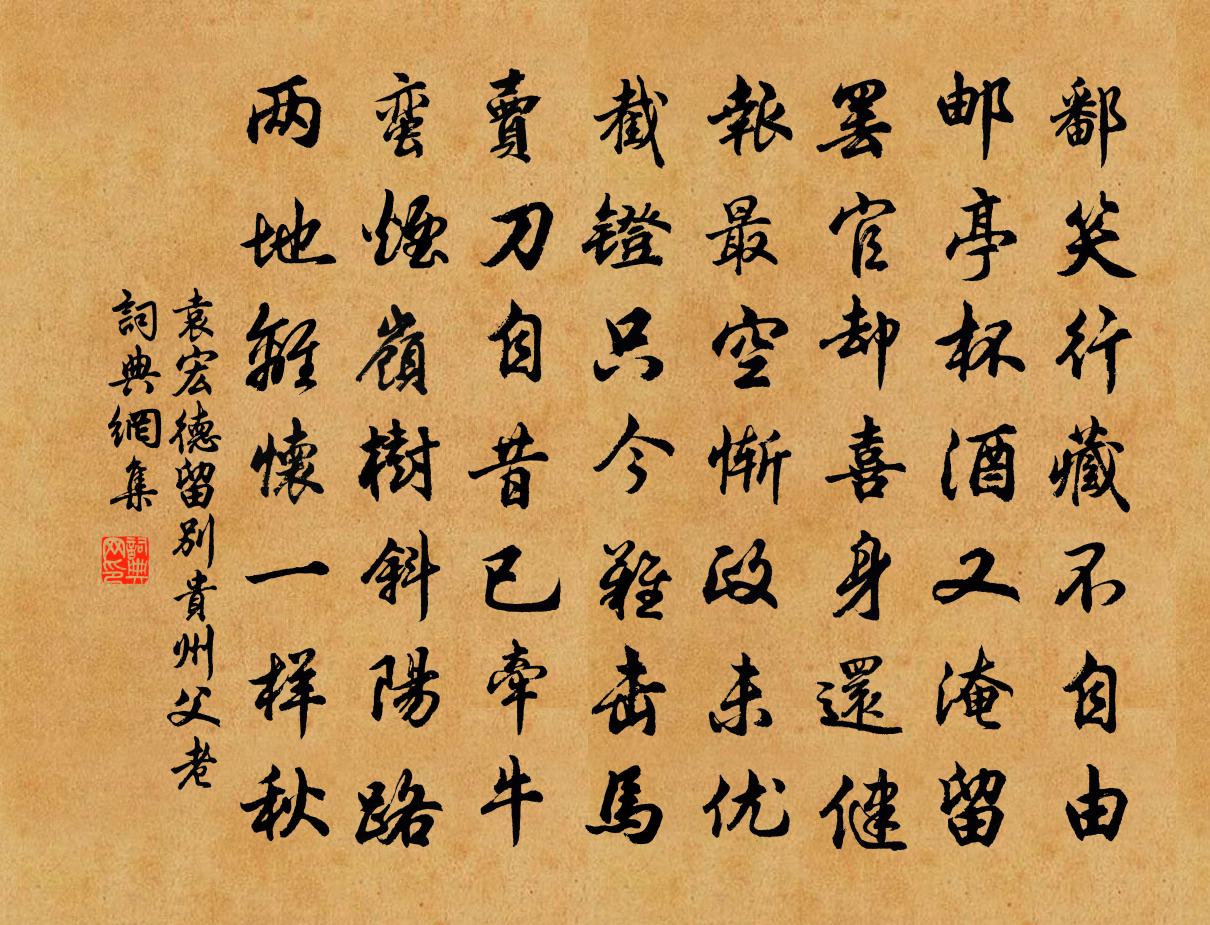 鄙笑行藏不自由
邮亭杯酒又淹留
罢官却喜身還健
報最空慚政未优
截鐙只今難出馬
賣刀自昔已牽牛
蛮煙嶺樹斜陽路
两地離懷一样秋
袁宏德留别貴州父老
詞典網集
詞典网印